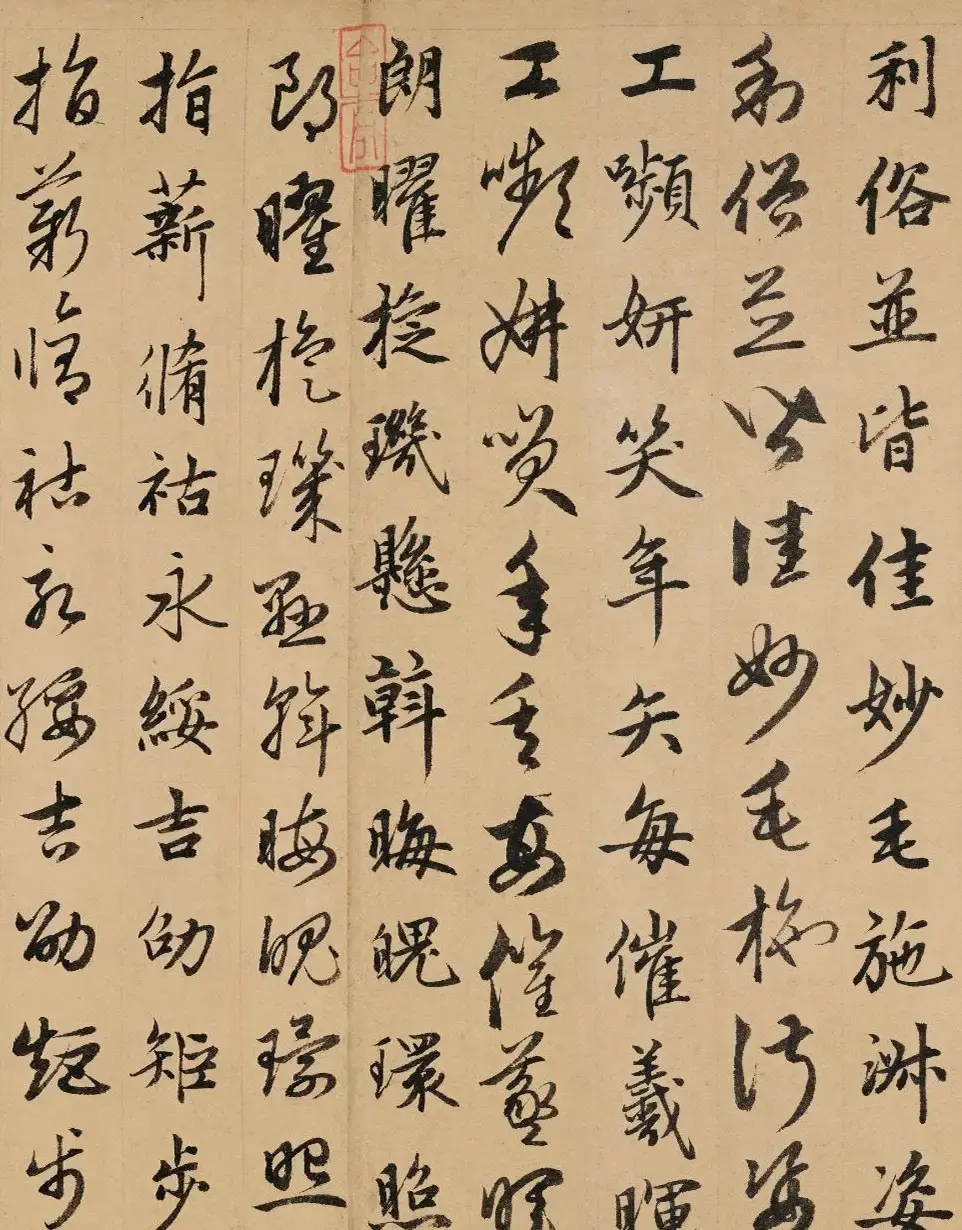 利俗並皆佳妙毛施淑姿
利俗並皆佳妙毛施淑姿
工嚬妍笑年矢每催羲暉
工嚬妍笑年矢每催羲暉
朗曜旋璣懸斡晦魄環照
朗曜旋璣懸斡晦魄環照
指薪脩祜永綏吉劭矩步
指薪脩祜永綏吉劭矩步